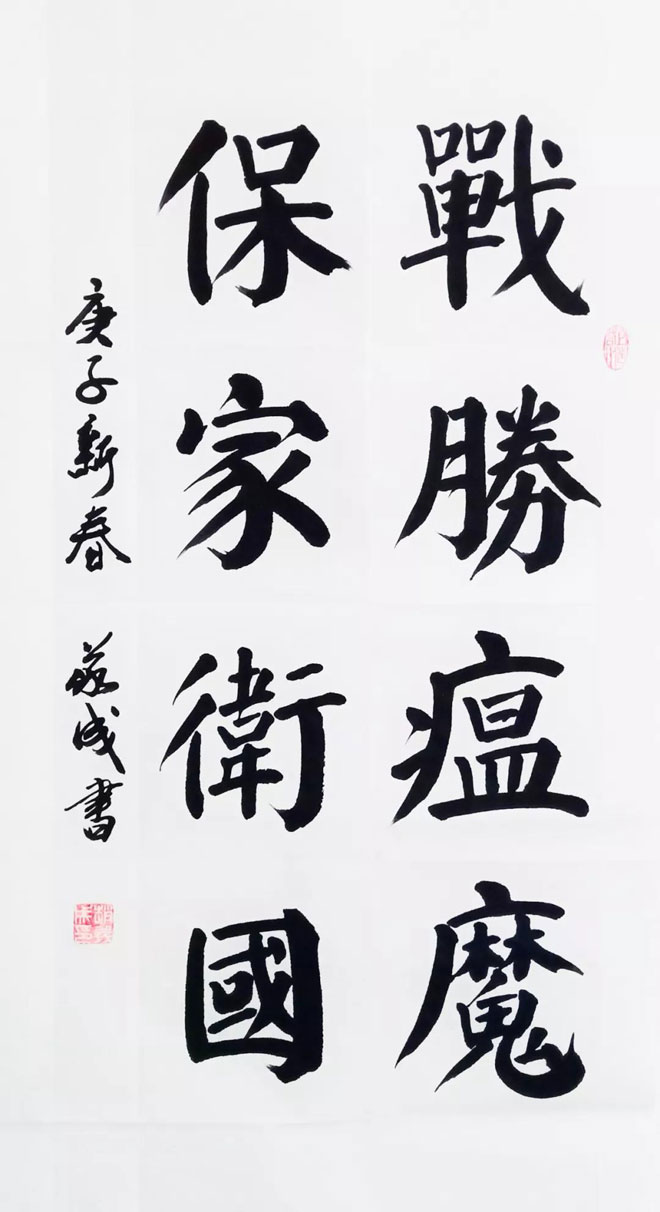 戰勝瘟魔
保家衛國
庚子新春 成書